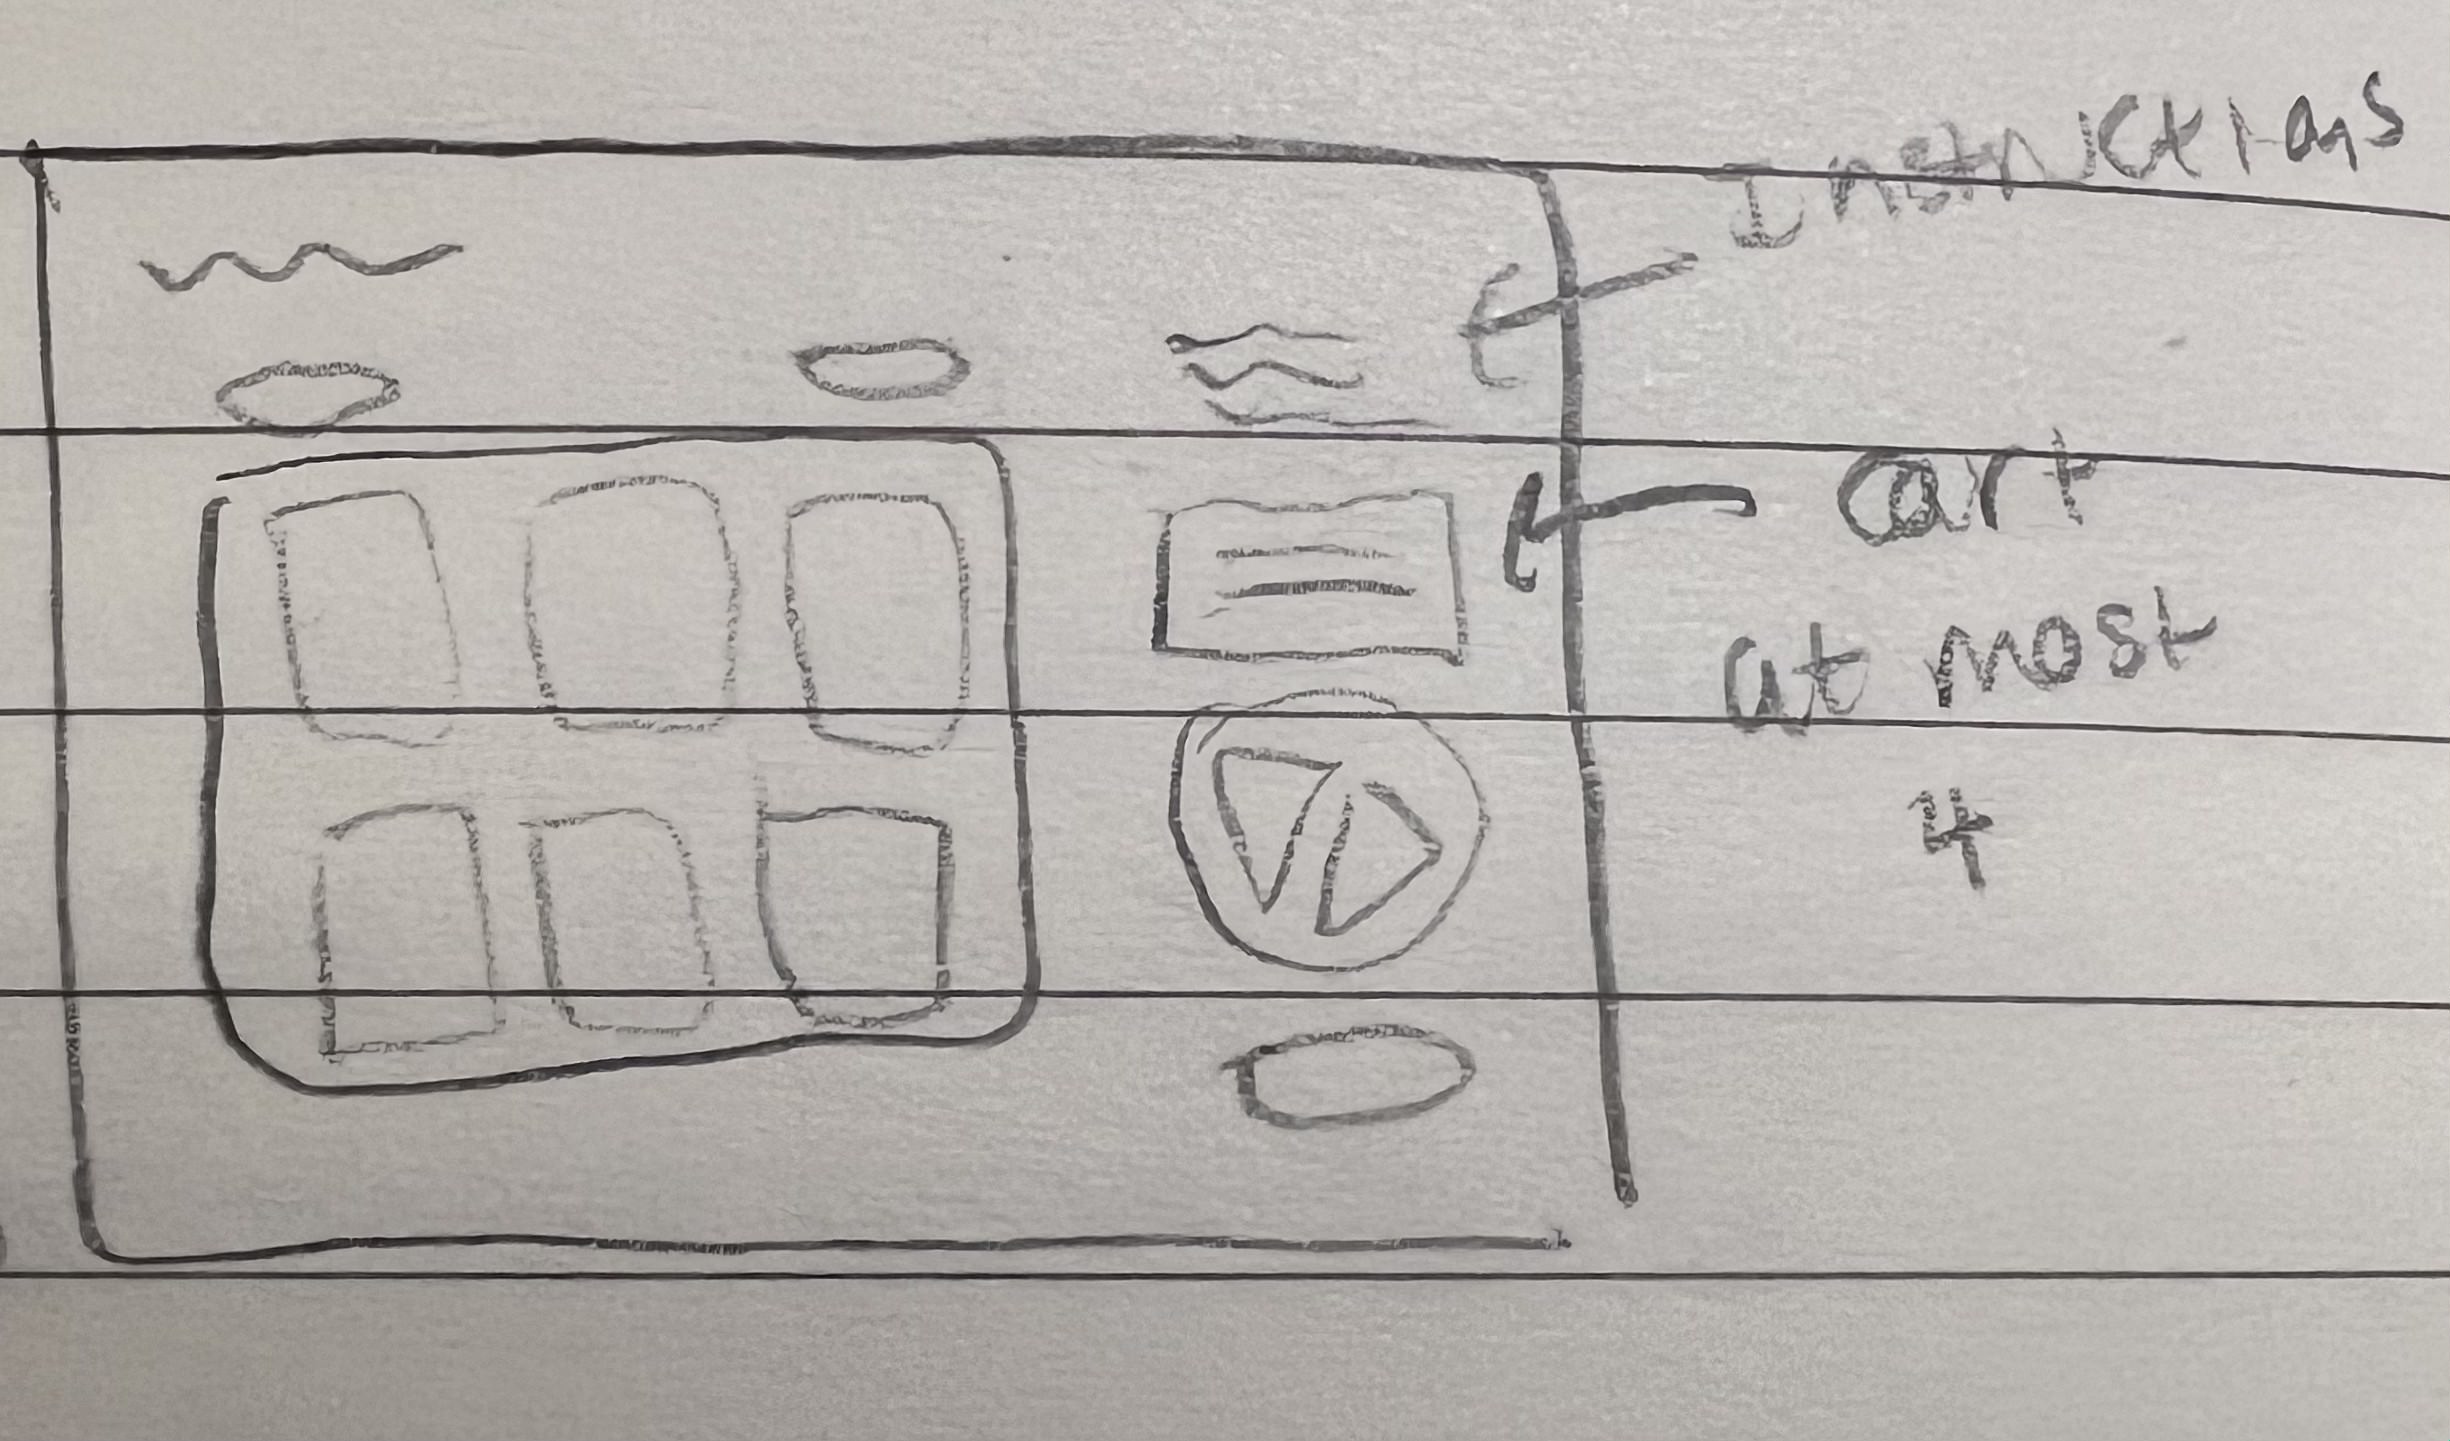 Instructions
art
at most
4